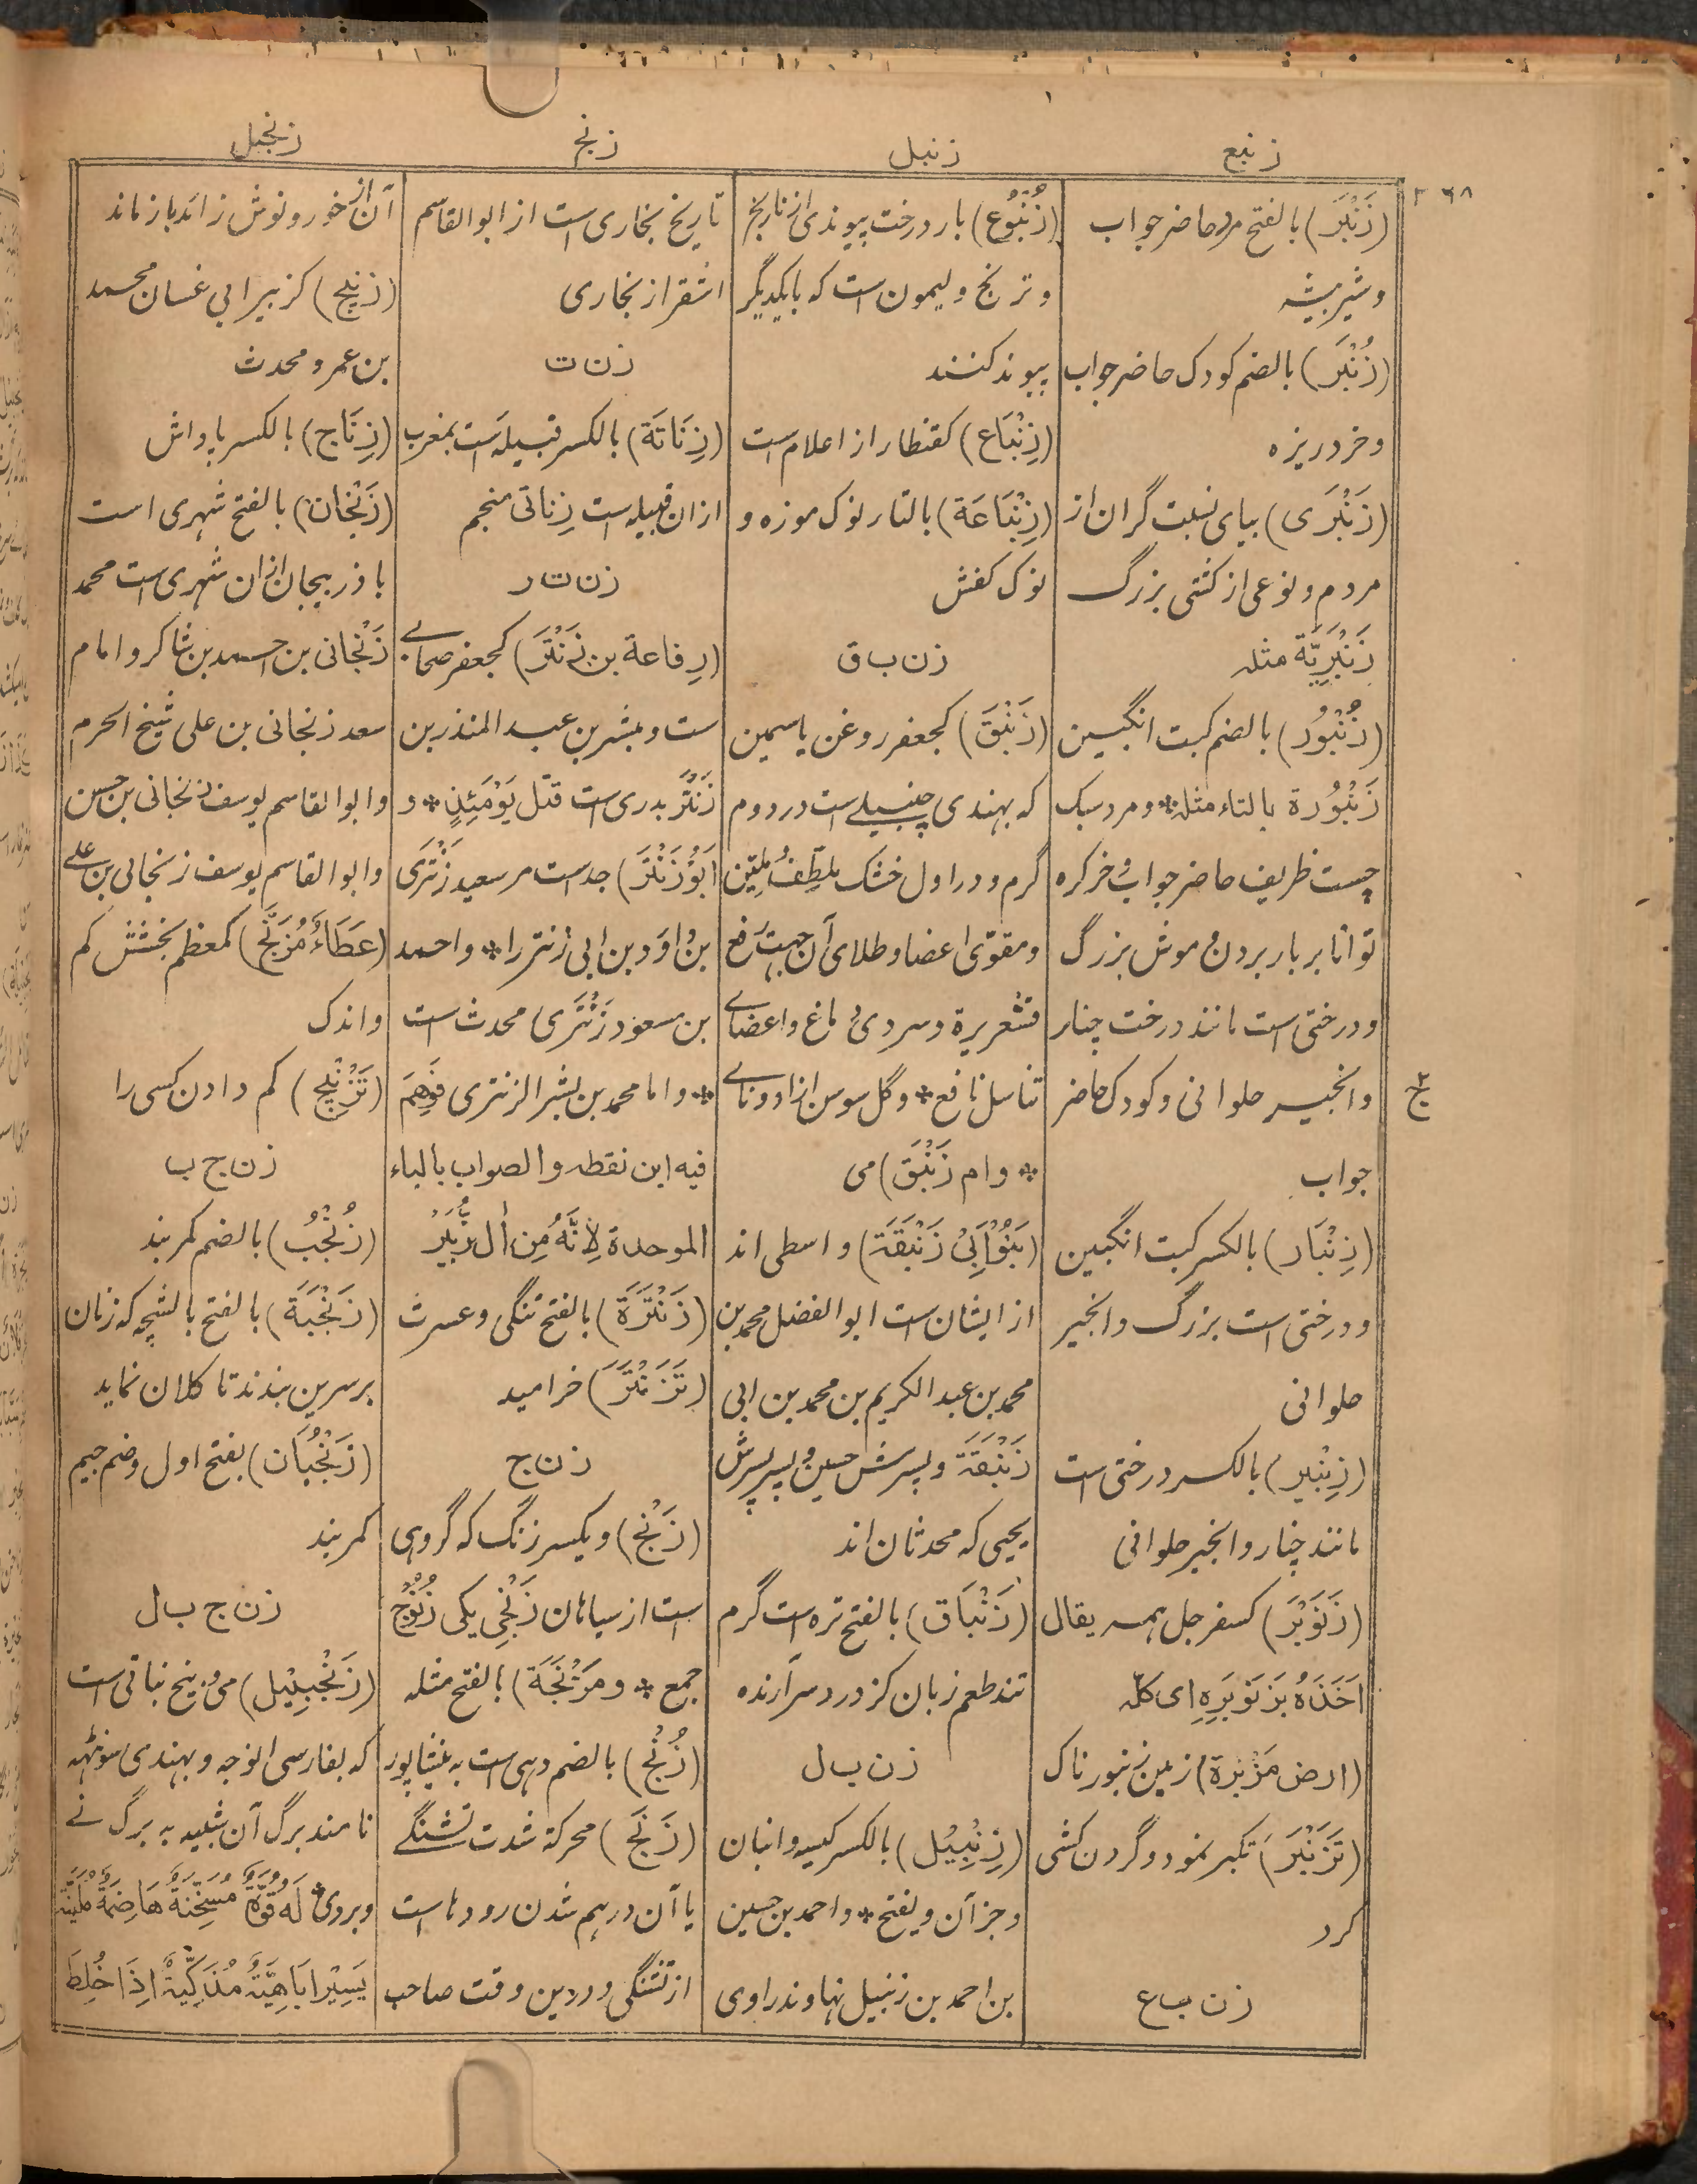 زنبع
زنبل
زنج
زنجبل
۳۶۸
(زَنْبَر) بالفتح مرد حاضر جواب
و شیر بیشه
(زُنْبَر) بالضم کودک حاضر جواب
و خرد ریزه
(زَنْبَرَی) بیای نسبت گران از
مردم و نوعی از کشتی بزرگ
زَنْبَرِیَّة مثله
(زُنْبُوُر) بالضم کبت انگبین
زُنْبُوُرة بالتاء مثله * و مرد سبک
چست ظریف حاضر جواب و خر کره
توانا بر بار بردن و موش بزرگ
و درختی است مانند درخت چنار
و انجیر حلوانی و کودک حاضر
جواب
(زِنْبَار) بالکسر کبت انگبین
و درختی است بزرگ و انجیر
حلوانی
(زِنْبِیر) بالکسر درختی است
مانند چنار و انجیر حلوانی
(زَنَوْبَر) کسفرجل همه یقال
اَخَذَهُ بِزَنَوْبَرِهِ ای کلّه
(ارض مَزْبَرة) زمین زنبورناک
(تَزَنْبَرَ) تکبر نمود و گردن کشی
کرد
زن ب ع
(زُنْبُوُع) بار درخت پیوندی از نارنج
و ترنج و لیمون است که بایکدیگر
پیوند کنند
(زِنْبَاع) کقنطار از اعلام است
(زِنْبَاعَة) بالتاء نوک موزه و
نوک کفش
زن ب ق
(زَنْبَق) کجعفر روغن یاسمین
که بهندی چنبیلی است در دوم
گرم و در اول خشک مُلَطِّفُ مُلَیِّن
و مقوّی اعضا و طلای آن جهت رفع
قشعریرة و سردی دماغ و اعضای
تناسل نافع * و گل سوسن ازاد و نای
* و ام زَنْبَق) می
(بَنُوْاَبِیْ زَنْبَقَة) واسطی اند
از ایشان است ابوالفضل محمد بن
محمد بن عبد الکریم بن محمد بن ابی
زَنْبَقَة و پسرش حسین و پسر پسرش
یحیی که محدثان اند
(زَنْبَاق) بالفتح تره است گرم
تند طعم زبان گز درد سر آرنده
زن ب ل
(زِنْبِیْل) بالکسر کیسه و انبان
و جز آن و یفتح * و احمد بن حسین
بن احمد بن زنبیل نهاوندراوی
تاریخ بخاری است از ابوالقاسم
اشقر از بخاری
زن ت
(زِنَاتَة) بالکسر قبیله است بمغرب
ازان قبیله است زناتی منجم
زن ت ر
(رِفاعة بن زَنْتَر) کجعفر صحابی
ست و بشر بن عبد المنذر بن
زَنْتَر بدری است قتل یَوْمَئِذٍ * و
اَبُوْ زَنْتَر) جد است مر سعید زَنْتَرَی
بن داود بن ابی زنتر را * و احمد
بن مسعود زَنْتَرَی محدث است
* و اما محمد بن بشر الزنتری فَوَهِمَ
فیه ابن نقطه و الصواب بالباء
الموحدة لِاَنَّهُ مِن اٰل زُبَیْر
(زَنْتَرَة) بالفتح تنگی و عسرت
(تَزَنْتَرَ) خرامید
زن ج
(زَنْج) و یکسر زنگ که گروهی
است از سیاهان زَنْجِی یکی زُنُوْج
جمع * و مَزْنَجَة) بالفتح مثله
(زُنْج) بالضم دهی است به نیشاپور
(زَنَج) محرکة شدت تشنگی
یا آن درهم شدن رودها است
از تشنگی و درین وقت صاحب
آن از خور و نوش زائد باز ماند
(زنیج) کزبیر ابی غسان محمد
بن عمرو محدث
(زِنَاج) بالکسر پاداش
(زَنْجان) بالفتح شهری است
باذربیجان ازان شهری است محمد
زَنْجانی بن احمد بن شاکر و امام
سعد زنجانی بن علی شیخ الحرم
و ابوالقاسم یوسف زنجانی بن حسن
و ابوالقاسم یوسف زنجانی بن علی
(عَطَاءٌ مُزَنَّج) کمعظم بخشش کم
و اندک
(تَزْنِیْج) کم دادن کسی را
زن ج ب
(زُنْجُب) بالضم کمربند
(زَنْجَبَة) بالفتح بالشچه که زنان
بر سرین بندند تا کلان نماید
(زَنْجُبَان) بفتح اول و ضم جیم
کمربند
زن ج ب ل
(زَنْجَبِیْل) می و بیخ نباتی است
که بفارسی انوجه و بهندی سونٹهه
نامند برگ آن شبیه به برگ نی
و بروی * لَه قُوَّةٌ مُسَخِّنَةٌ هَاضِمَةٌ مُلَیِّنَة
یَسِیْرًا بَاهِیَّةٌ مُذَکِّیَةٌ اِذَا خُلِطَ